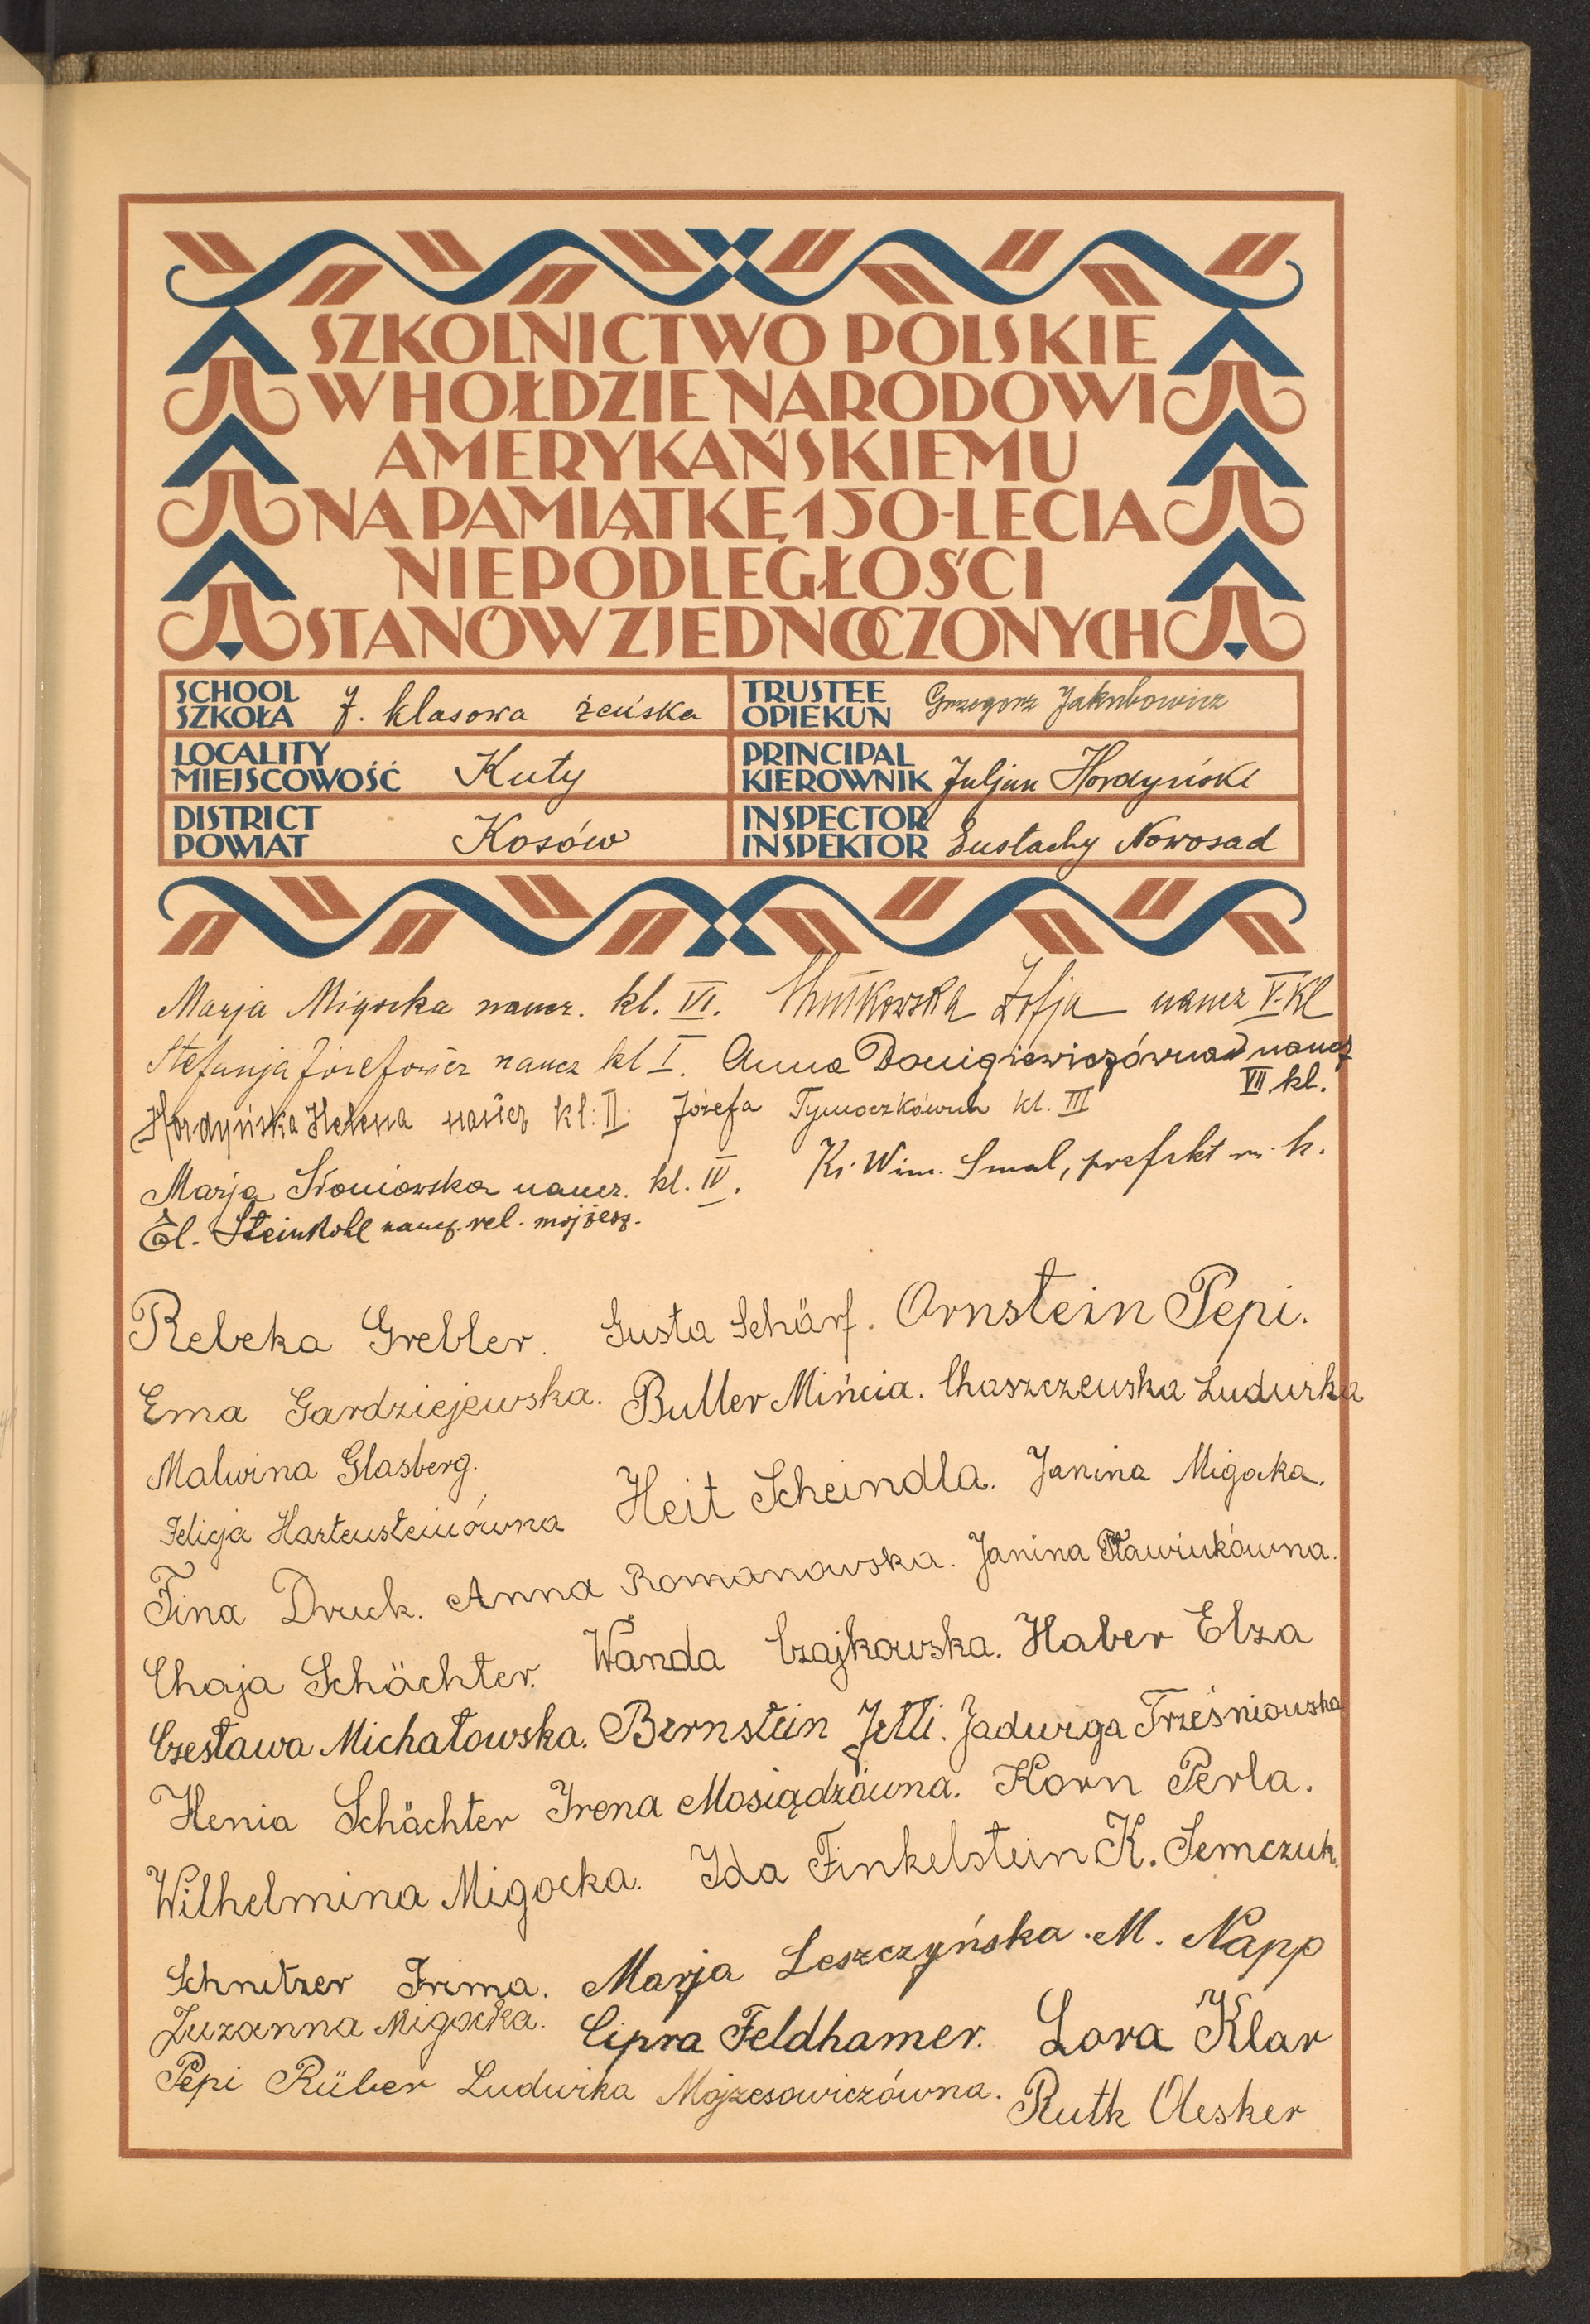 SZKOLNICTWO POLSKIE
W HOŁDZIE NARODOWI
AMERYKAŃSKIEMU
NA PAMIĄTKĘ 150-LECIA
NIEPODLEGŁOŚCI
STANÓW ZJEDNOCZONYCH
SCHOOL
SZKOŁA 7. klasowa żeńska
TRUSTEE
OPIEKUN Grzegorz Jakubowicz
LOCALITY
MIEJSCOWOŚĆ Kuty
PRINCIPAL
KIEROWNIK Juljan Hordyński
DISTRICT
POWIAT Kosów
INSPECTOR
INSPEKTOR Eustachy Nowosad
Marja Migocka naucz. kl. VI. Zofja naucz V. Kl
Stefanja Józefowicz naucz kl I. Anna Donigiewiczówna naucz
VII kl.
Hordyńska Helena naucz kl: II. Józefa Tymoczkówna kl. III
Marja Słoniowska naucz. kl. IV. Ks. Win. Smal, prefekt
El. Steinkohl naucz. rel. mojżesz.
Rebeka Grebler. Gusta Schärf. Ornstein Pepi.
Ema Gardziejewska. Butler Mińcia. Chaszczewska Ludwika
Malwina Glasberg.
Felicja Hartensteinówna Heit Scheindla. Janina Migocka.
Fina Druck. Anna Romanowska. Janina Pławiukówna.
Chaja Schächter. Wanda Czajkowska. Haber Elza
Czesława Michałowska. Bernstein Jetti. Jadwiga Trześniowska
Henia Schächter Irena Mosiądzówna. Korn Perla.
Wilhelmina Migocka. Ida Finkelstein K. Semczuk.
Schnitzer Frima. Marja Leszczyńska. M. Napp
Zuzanna Migocka. Cipra Feldhamer. Lora Klar
Pepi Rüber Ludwika Mojzesowiczówna. Ruth Olesker